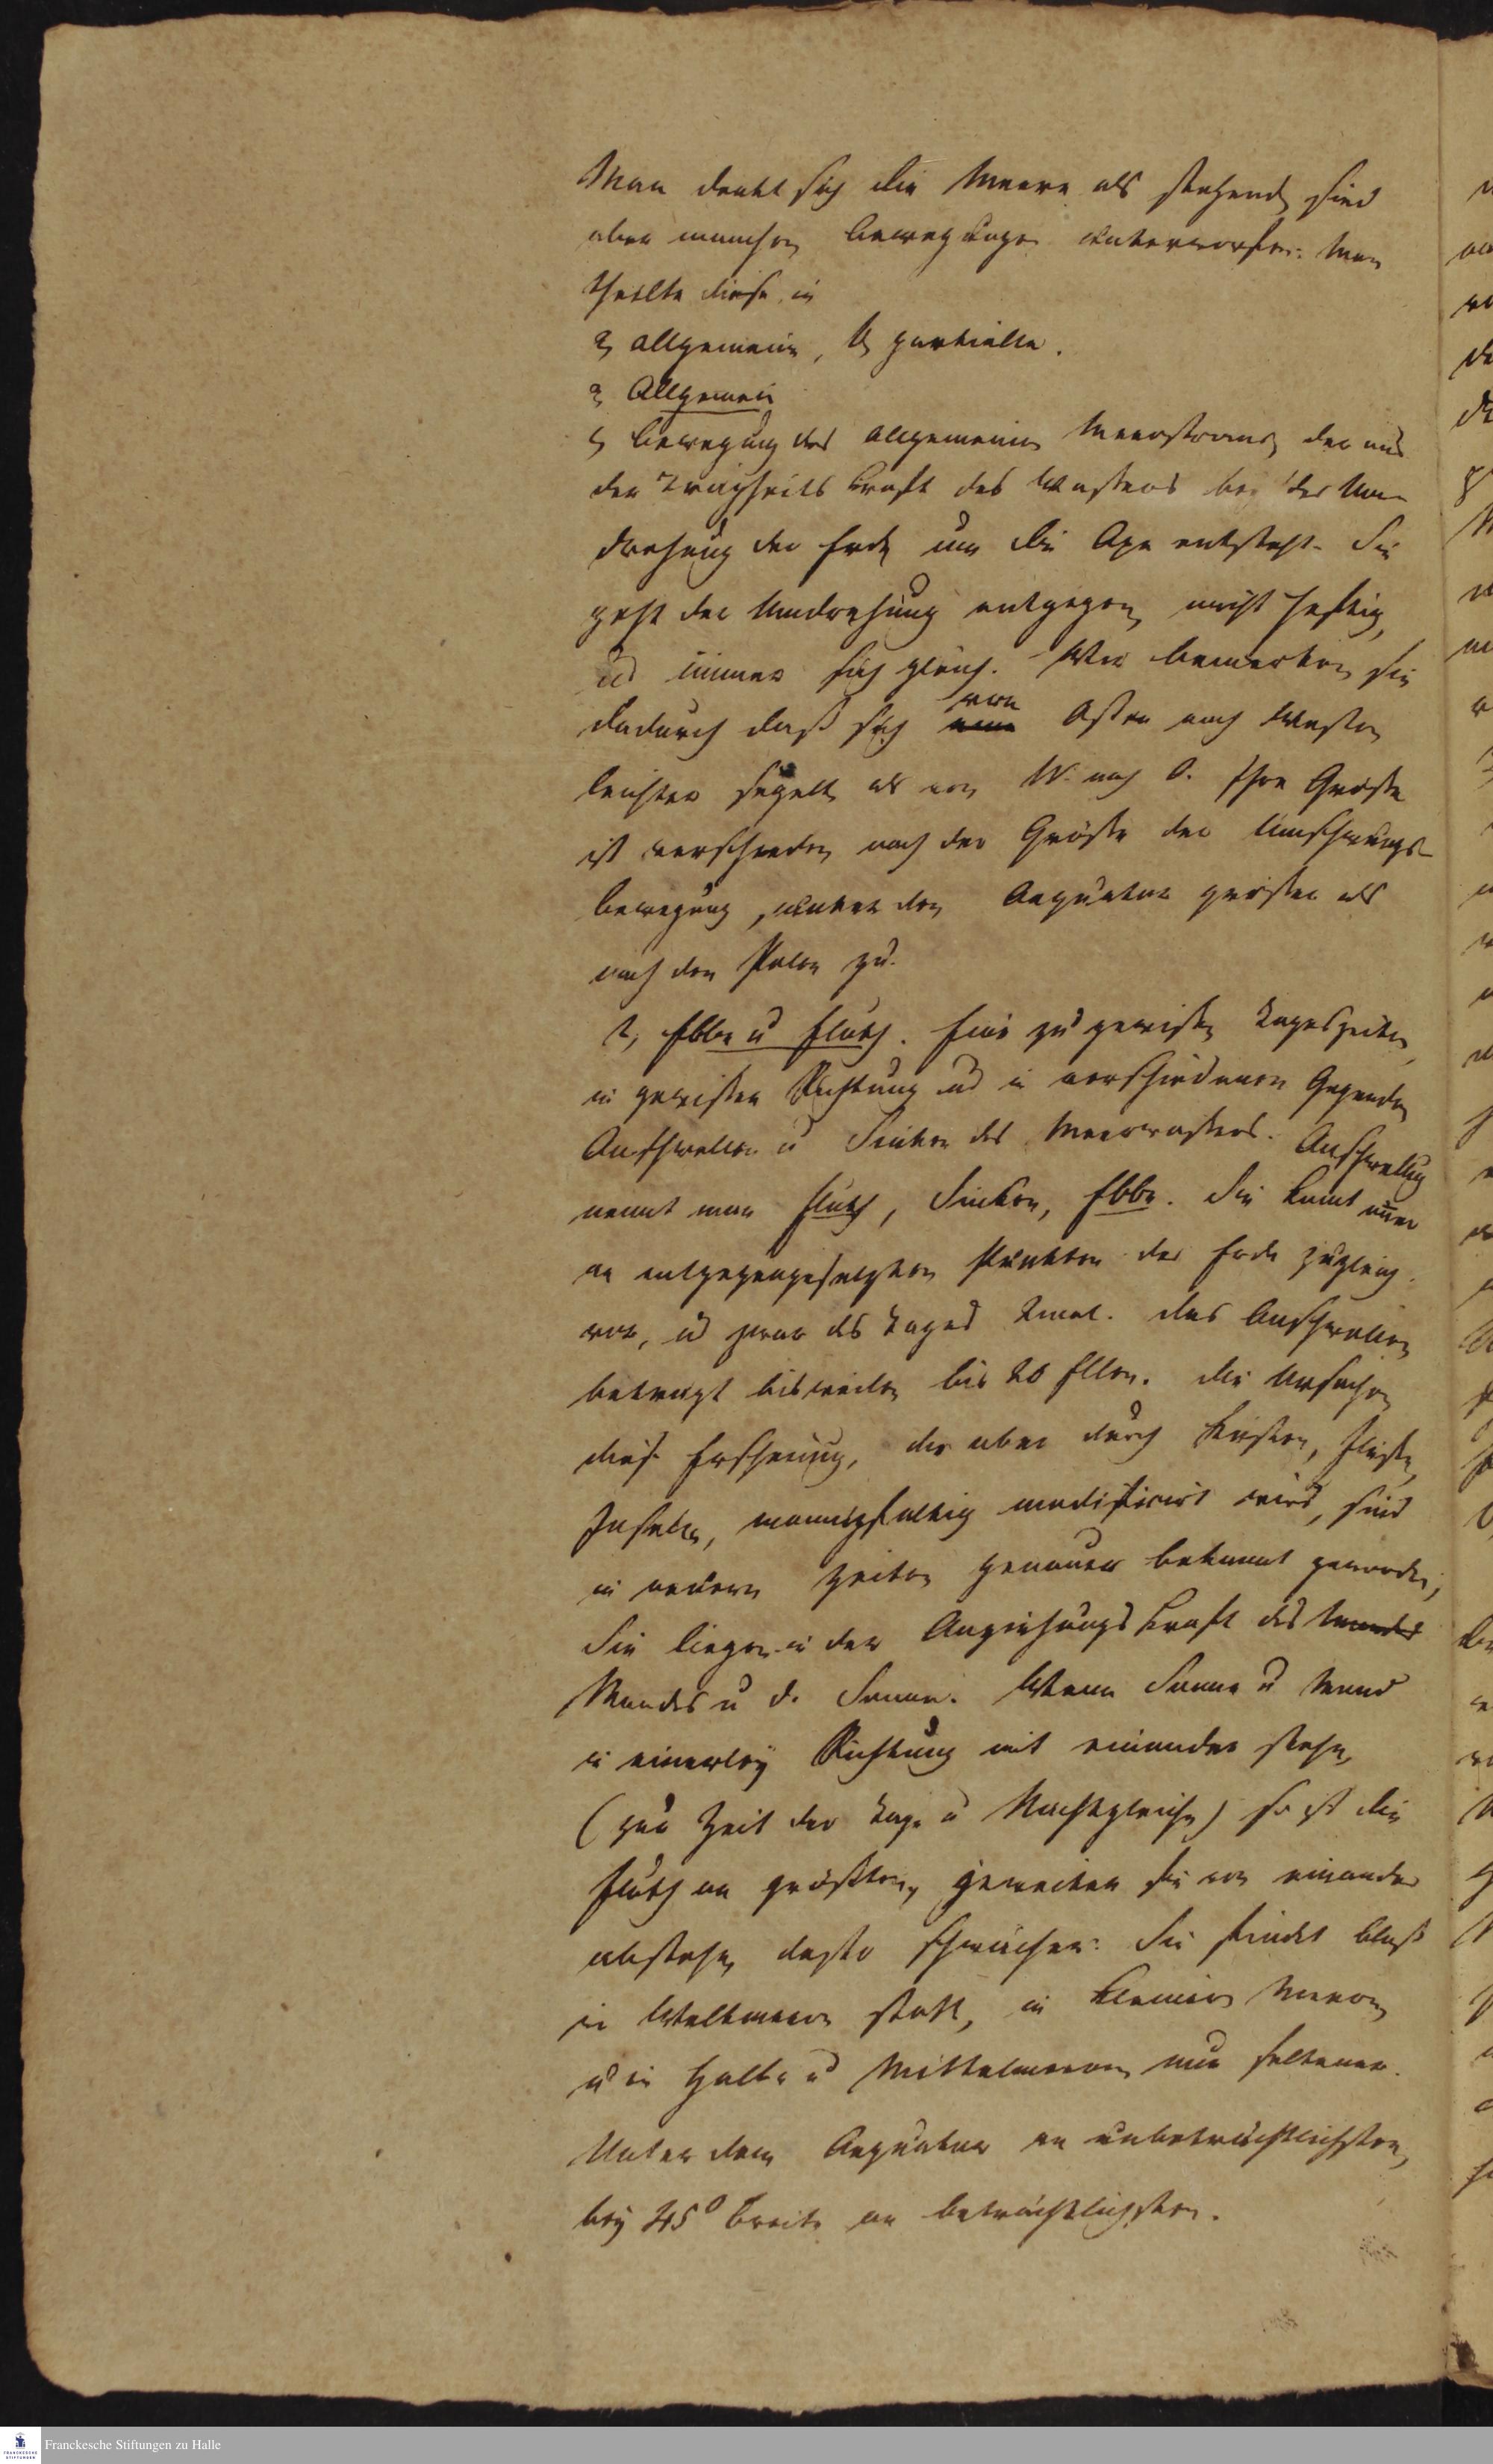 Man denkt sich die Meere als stehend, sind
aber manchen Bewegungen unterworfen. Man
theilte diese in
a, allgemeine, b, partielle.
a, Allgemein
1, Bewegung des allgemeinen Meerstroms, der aus
der Trägheitskraft des Wassers bei der Um-
drehung der Erde um die Axe entsteht. Sie
geht der Umdrehung entgegen, nicht heftig,
ud immer sich gleich. Wir bemerken sie
dadurch daß sich von Osten nach Westen
leichter segelt, als von W. nach O. Ihre Größe
ist verschieden nach der Größe der Umschwungs-
bewegung, unter dem Aequator größer als
nach den Polen zu.
2, Ebbe u Fluth. Eine zu gewissen Tageszeiten,
in gewisser Richtung ud in verschiedenen Gegenden
Aufschwellen u Sinken des Meerwassers. Anschwellung
nennt man Fluth, Sinken, Ebbe. Sie komt immer
an entgegengesetzten Punkten der Erde zugleich
vor, ud zwar des Tages 2mal. Das Anschwellen
beträgt bisweilen bis 20 Ellen. Die Ursachen
dieser Erscheinung, die aber durch Küsten, Flüsse,
Inseln, mannigfaltig modificirt wird, sind
in neuern Zeiten genauer bekannt geworden,
Sie liegen in der Anziehungskraft des Mondes
Mondes u d. Sonne. Wenn Sonne u Mond
in einerley Richtung mit einander stehn,
(zur Zeit der Tag u Nachtgleiche) so ist die
Fluth am größten, jeweiter sie von einander
abstehn, desto schwächer. Sie findet bloß
in Weltmeeren statt, in kleinern Meeren,
u in Halb u Mittelmeeren nur seltener.
Unter dem Aequator am unbeträchtlichsten,
bey 45° Breite am beträchtlichsten.
Franckesche Stiftungen zu Halle